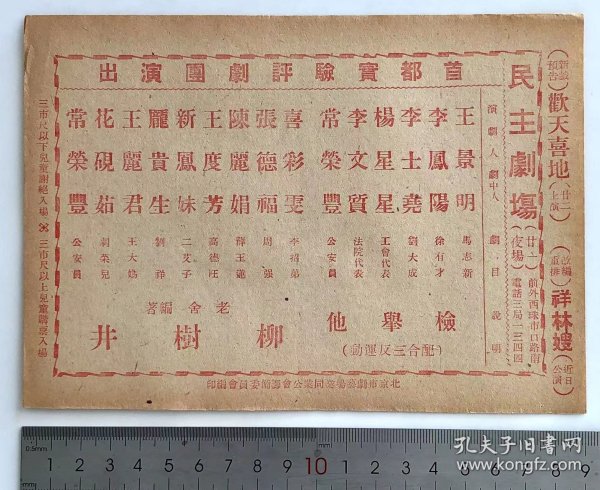 新戲預告 歡天喜地 (廿二上演) 改編重排 祥林嫂 (近日公演)
民主劇場 (廿一夜場) 前外西珠市口路南 電話三局一三四四
首都實驗評劇團演出
演劇人 劇中人 劇目 說明
王景明 馬志新
李鳳陽 徐有才
李士堯 劉大成
楊星星 工會代表
李文質 法院代表
常榮豐 公安員
檢舉他
(配合三反運動)
喜彩雯 李招弟
張德福 周強
陳麗娟
王度芳
新鳳妹 二艾子
龎貴生 劉祥
王麗君 王大媽
花硯茹
常榮豐 公安員
老舍編著
柳樹井
三市尺以下兒童謝絕入場 三市尺以上兒童購票入場
0.5mm 1 2 3 4 5 6 7 8 9 10 11 12 13 14 15 16 17 18
孔夫子旧书网
www.kongfz.com